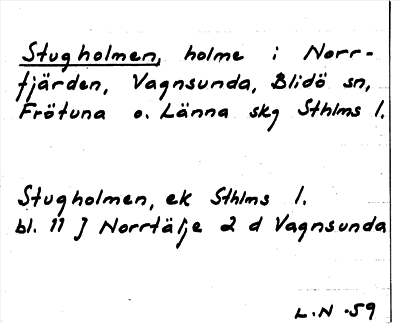 Stugholmen, holme i Norr-
fjärden, Vagnsunda, Blidö sn,
Frötuna o. Länna skg Sthlms l.
Stugholmen, ek Sthlms l.
bl. 11 J Norrtälje 2 d Vagnsunda
L.N -59